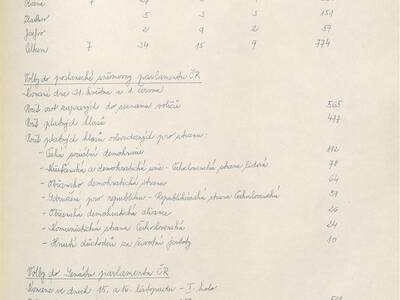 5 3 3 151
2 9 2 57
Celkem 7 34 15 9 774
Volby do poslanecké sněmovny parlamentu ČR
Konané dne 31. května a 1. června
Počet osob zapsaných do seznamu voličů 565
Počet platných hlasů 477
Počet platných hlasů odevzdaných pro stranu:
- Česká sociální demokracie 112
- Křesťanská a demokratická unie - Československá strana lidová 78
- Občanská demokratická strana 64
- Sdružení pro republiku - Republikánská strana Československa 51
- Občanská demokratická aliance 26
- Komunistická strana Československa 24
- Hnutí důchodců za životní jistoty 10
Volby do Senátu parlamentu ČR
Konané ve dnech 15. a 16. listopadu - I. kolo